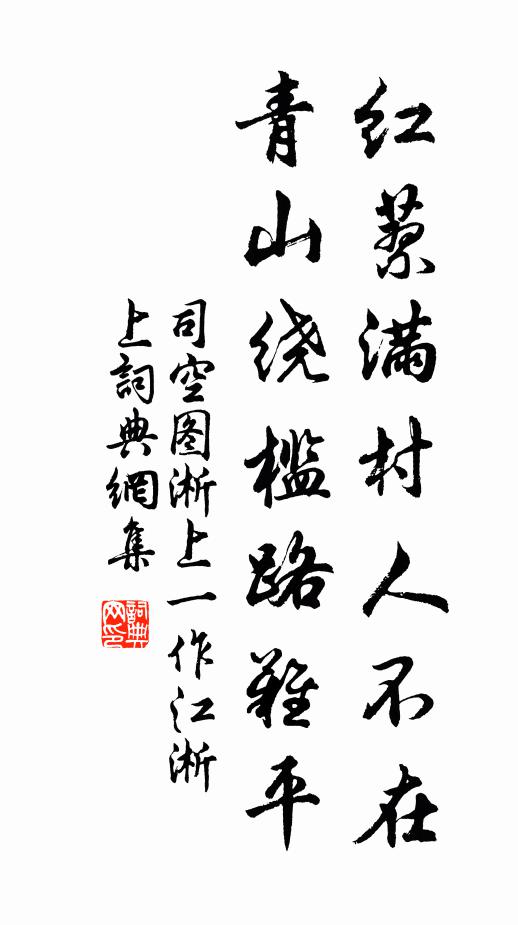 红蓼满村人不在
青山绕槛路難平
司空图淅上一作江淅
上詞典網集
詞典
网印